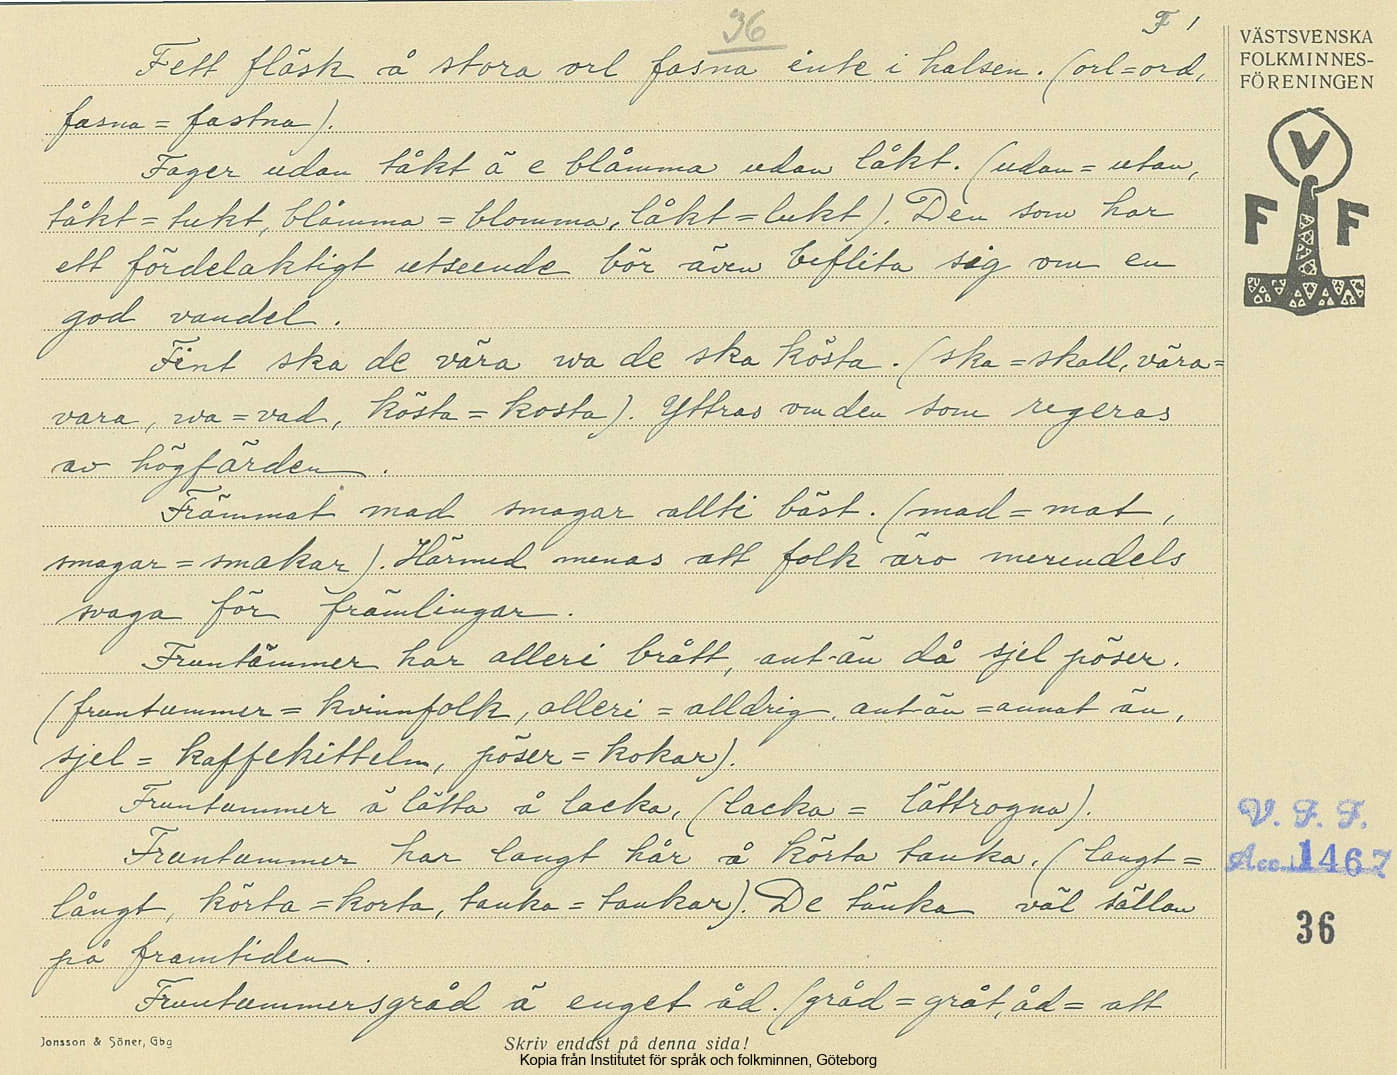 36
F 1
Fett fläsk å stora orl fasna inte i halsen. (orl = ord,
fasna = fastna).
Fager udan tåkt ä e blåmma udan låkt. (udan = utan,
tåkt = tukt, blåmma = blomma, låkt = lukt). Den som har
ett fördelaktigt utseende bör även beflita sig om en
god vandel.
Fint ska de vära va de ska kösta. (ska = skall, vära =
vara, va = vad, kösta = kosta). Yttras om den som regeras
av högfärden.
Främmat mad smagar allti bäst. (mad = mat,
smagar = smakar). Härmed menas att folk äro merendels
svaga för främlingar.
Fruntämmer har alleri brått, ant-än då sjel pöser.
(fruntummer = kvinnfolk, alleri = alldrig, ant-än = annat än,
sjel = kaffekitteln, pöser = kokar).
Fruntummer ä lätta å lacka, (lacka = lättrogna).
Fruntummer har langt hår å körta tanka. (langt =
långt, körta = korta, tanka = tankar). De tänka väl sällan
på framtiden.
Fruntummersgråd ä enget åd. (gråd = gråt, åd = att
VÄSTSVENSKA
FOLKMINNES-
FÖRENINGEN
V
F F
V. F. F.
Acc. 1467
36
Jonsson & Söner, Gbg
Skriv endast på denna sida!
Kopia från Institutet för språk och folkminnen, Göteborg